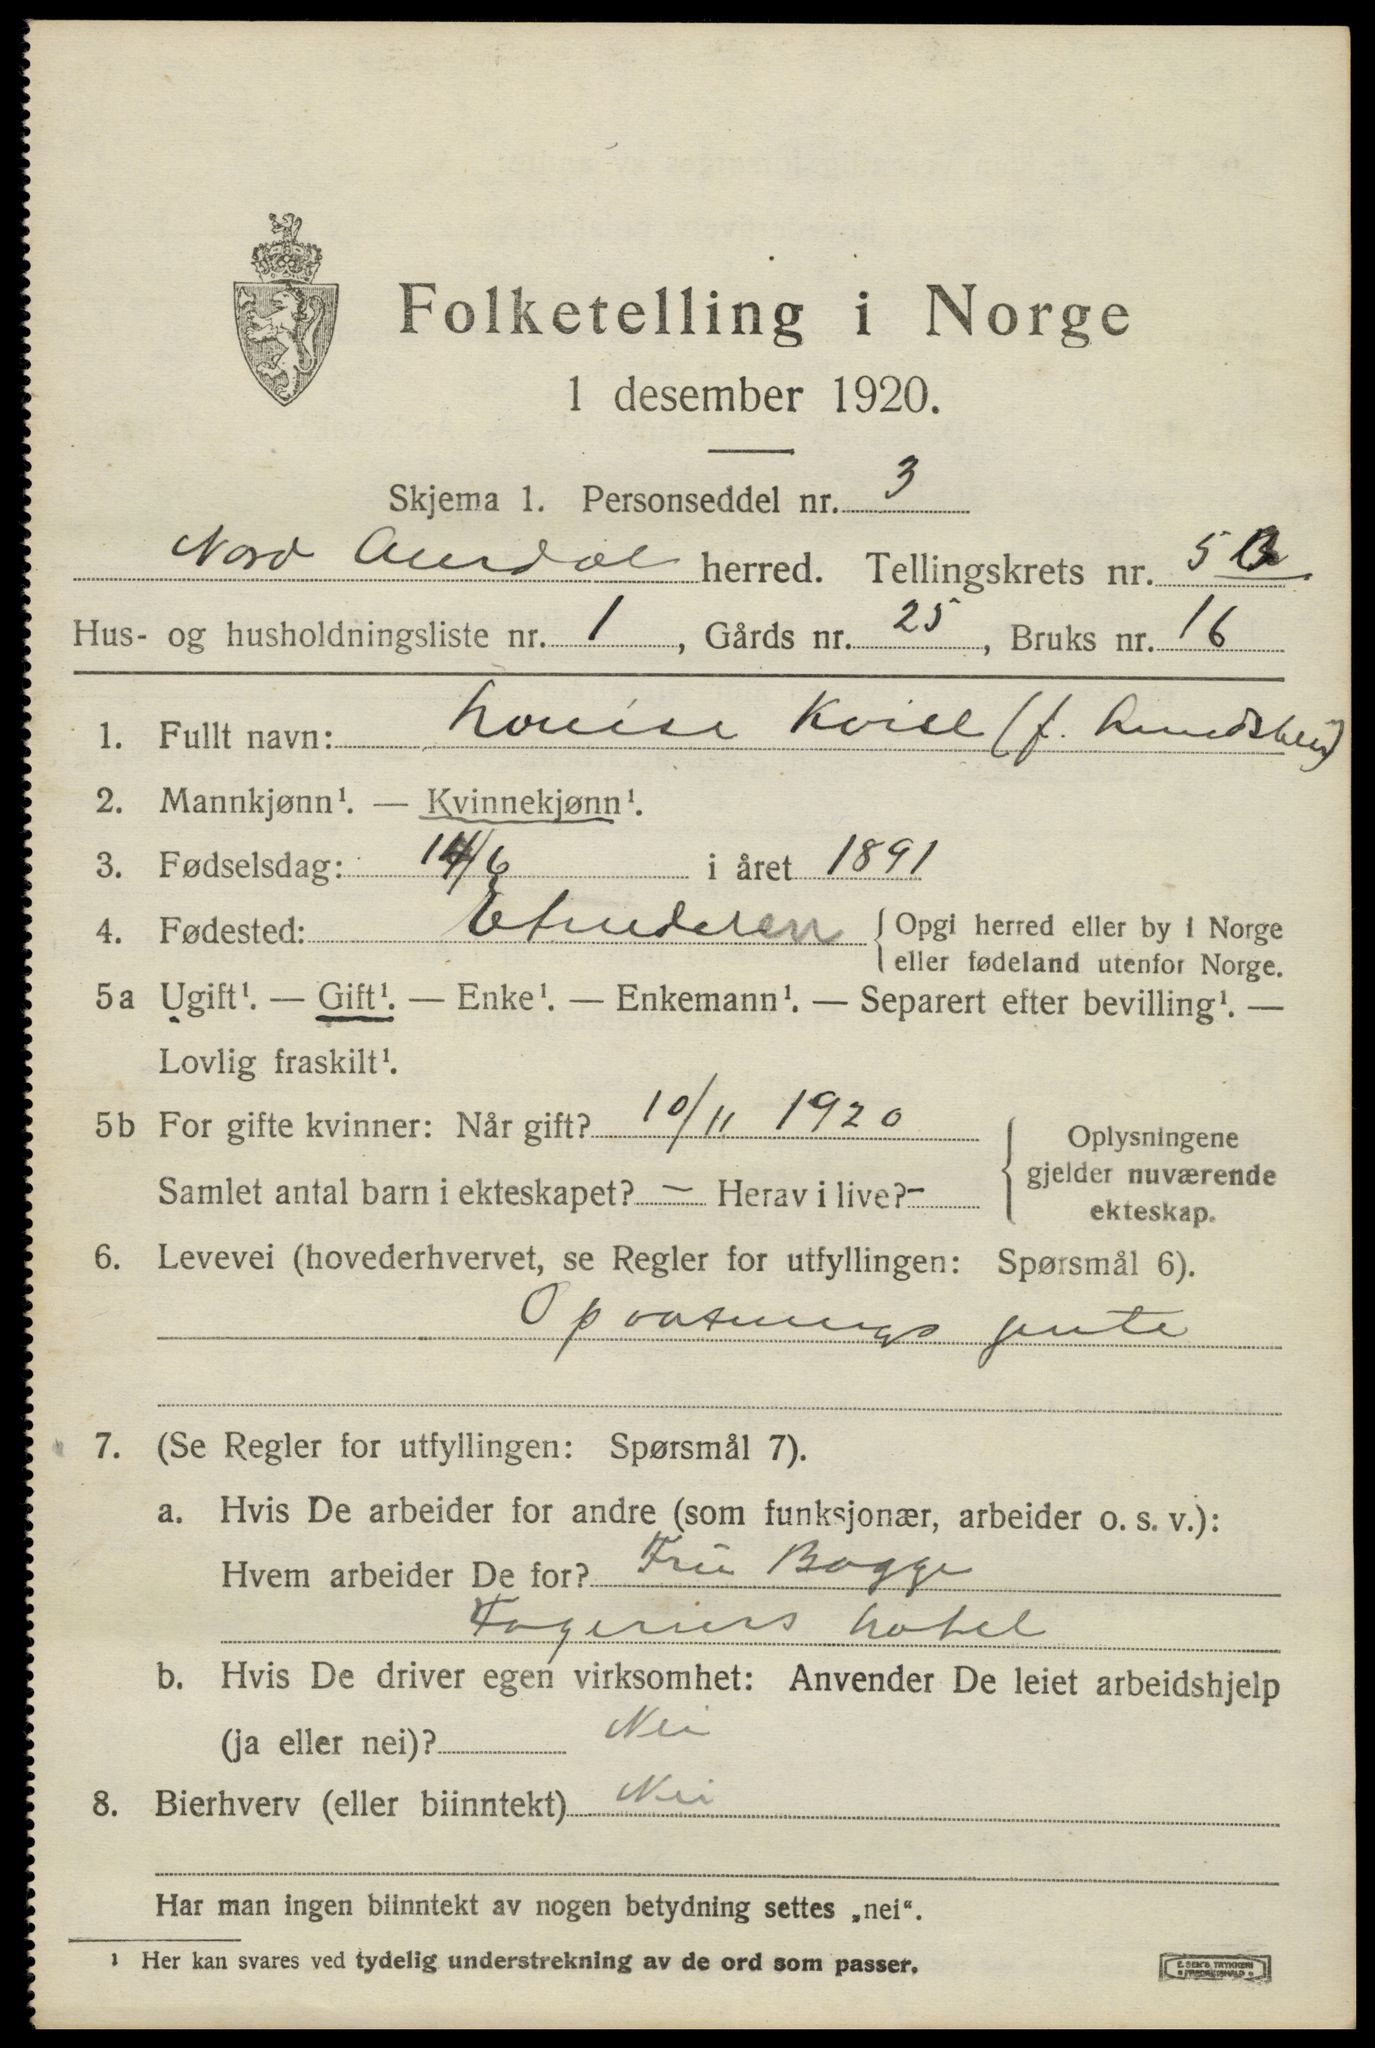 Folketelling i Norge
1 desember 1920.
Skjema 1. Personseddel nr. 3
Nord Aurdal herred. Tellingskrets nr. 5 B
Hus- og husholdningsliste nr. 1, Gårds nr. 25, Bruks nr. 16
1. Fullt navn: Louise Kviel (f.
2. Mannkjønn¹. — Kvinnekjønn¹.
3. Fødselsdag: 14/6 i året 1891
4. Fødested: Etnedalen { Opgi herred eller by i Norge
eller fødeland utenfor Norge.
5a Ugift¹. — Gift¹. — Enke¹. — Enkemann¹. — Separert efter bevilling¹. —
Lovlig fraskilt¹.
5b For gifte kvinner: Når gift? 10/11 1920
Samlet antal barn i ekteskapet? — Herav i live? –
{ Oplysningene
gjelder nuværende
ekteskap.
6. Levevei (hovederhvervet, se Regler for utfyllingen: Spørsmål 6).
Opvatnings jente
7. (Se Regler for utfyllingen: Spørsmål 7).
a. Hvis De arbeider for andre (som funksjonær, arbeider o. s. v.):
Hvem arbeider De for? Fru Bagge
Fagernes hotel
b. Hvis De driver egen virksomhet: Anvender De leiet arbeidshjelp
(ja eller nei)? Nei
8. Bierhverv (eller biinntekt) Nei
Har man ingen biinntekt av nogen betydning settes „nei“.
¹ Her kan svares ved tydelig understrekning av de ord som passer.
E. SEM'S TRYKKERI
FREDRIKSHALD